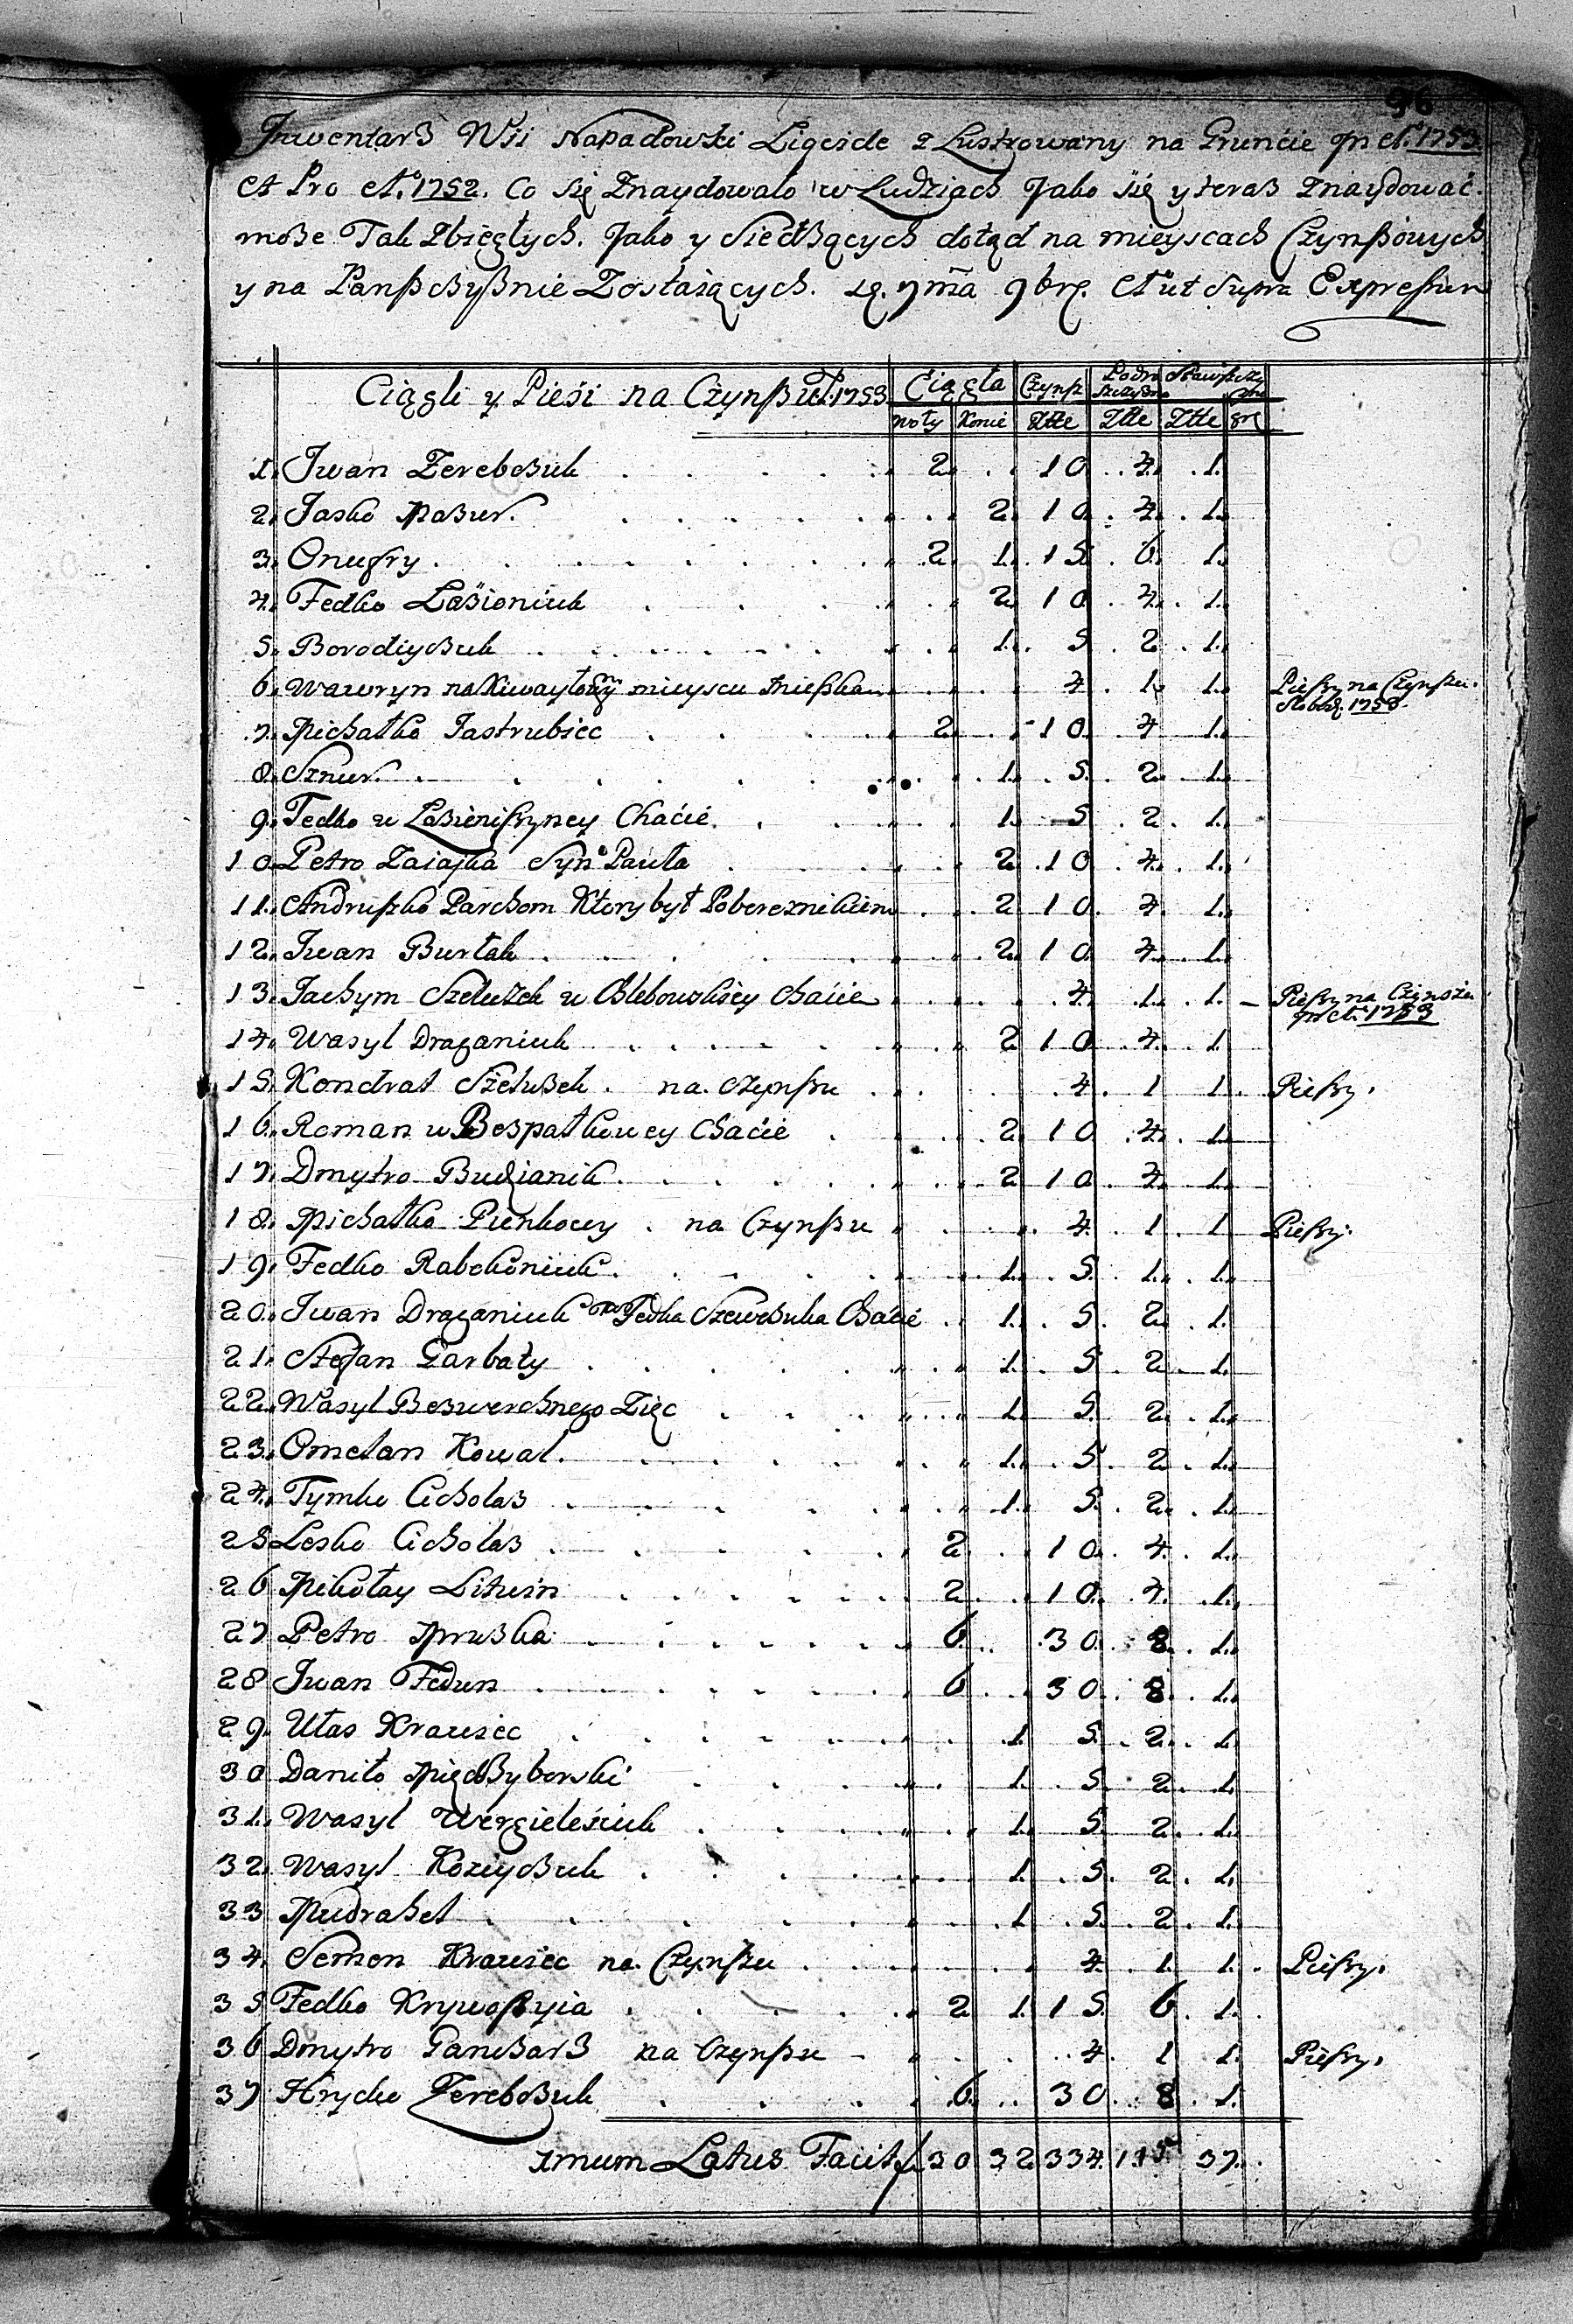 96
Inwentarz Wsi Napadowki Ligęide Zlustrowany na Gruncie in Ao. 1753
et Pro Ao. 1752. Co się Znaydowało w Ludziach Jako się y teraz znaydować
może Tak Zbiegłych. Jako y Siedzących dotąd na mieyscach Czynßowych
y na Panßczyßnie Zostaiących. 9bre. Ao ut Supra Expressum
Ciągli y Pieśi na Czynßu Ao. 1753 Ciągła Czynß Podro
woły Konie Złłe Złłe Złłe gr
1. Iwan Zerebczuk 2. 10. 4. 1.
2. Jasko Mazur. 2. 10. 4. 1.
3. Onufry 2. 1. 15. 6. 1.
4. Fedko Łazioniuk 2. 10. 4. 1.
5. Borodiyczuk 1. 5. 2. 1.
6. Wawryn na mieyscu mießka 4. 1. 1. Pießzy na Czynßu.
1758.
7. Michałko Jastrubiec 2. 10. 4. 1.
8. Sznur. 1. 5. 2. 1.
9. Fedko w Chacie. 1. 5. 2. 1.
10. Petro Zaiaika Syn Pauła 2. 10. 4. 1.
11. Andruszko Parchom Ktory był Pobereznikiem 2. 10. 4. 1.
12. Iwan Burłak 2. 10. 4. 1.
13. Jachym Szeluzek w Chlebowskiey Chacie 4. 1. 1. Pießzy na Czinszu
pr Ao. 1753
14. Wasyl Draganiuk 2 10. 4. 1
15. Kondrat Szeluzek. na Czynßzu 4. 1 1. Pießzy.
16. Roman w Bezpałkowey Chacie 2. 10 4. 1.
17. Dmytro Budzianik 2 10. 4. 1.
18. Michałko Pienkowy. na Czynßzu 4. 1. 1 Pießzy.
19. Fedko Rabokoniuk. 1. 5. 1. 1.
20. Iwan Draganiuk Fedka Szewczuka Chacie 1. 5. 2. 1.
21. Stefan Garbaty 1. 5. 2. 1.
22. Wasyl Bezwerchnego Zięc 1. 5. 2. 1.
23. Omelan Kowal. 1. 5. 2. 1.
24. Tymko Cicholaz 1. 5. 2. 1.
25 Lesko Cicholaz 2. 10. 4. 1.
26 Mikołay Litwin 2. 10. 4. 1.
27 Petro Mruzka 6. 30. 8. 1.
28 Iwan Fedun 6. 30. 8. 1.
29. Ułas Krawiec 1. 5. 2. 1.
30 Daniło Międzyborski 1. 5. 2. 1.
31. Wasyl Wergieleśiuk 1. 5. 2. 1.
32. Wasyl Koziyczuk 1. 5. 2. 1.
33 Mudrahel 1 5. 2. 1.
34. Semen Krawiec na Czynßzu 4. 1. 1. Pießzy.
35 Fedko Krywoßyia 2 1. 15. 6. 1.
36 Dmytro Ganczarz na Czynßzu 4. 1 1. Pießzy.
37 Hryćko Zerebczuk 6. 30. 8. 1.
1mum Latus Facit 30 32 334. 115 37.